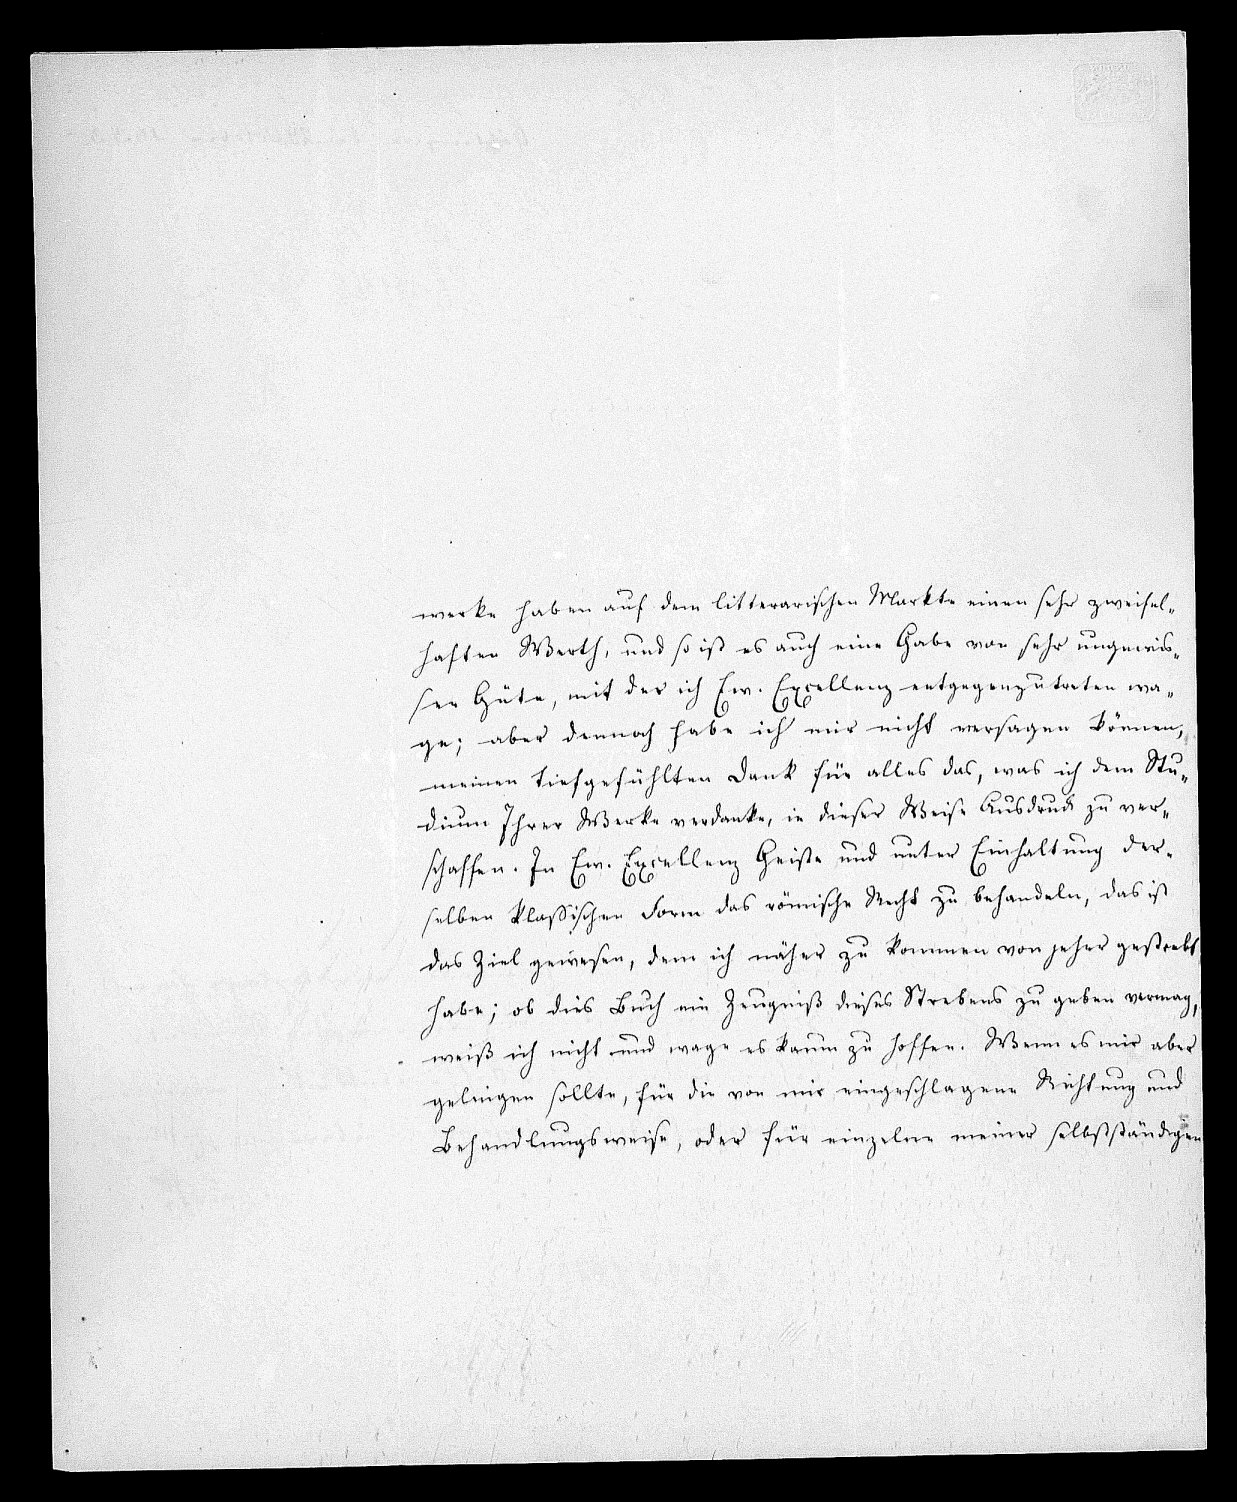 werke haben auf dem litterarischen Markte einen sehr zweifel-
haften Werth, und so ist es auch eine Gabe von sehr ungewis-
ser Güte, mit der ich Ew. Excellenz entgegenzutreten wa-
ge; aber dennoch habe ich mir nicht versagen können,
meinen tiefgefühlten Dank für alles das, was ich dem Stu-
dium Ihrer Werke verdanke, in dieser Weise Ausdruck zu ver-
schaffen. In Ew. Excellenz Geiste und unter Einhaltung der-
selben klassischen Form das römische Recht zu behandeln, das ist
das Ziel gewesen, dem ich näher zu kommen von jeher gestrebt
habe; ob dies Buch ein Zeugniß dieses Strebens zu geben vermag,
weiß ich nicht und wage es kaum zu hoffen. Wenn es mir aber
gelingen sollte, für die von mir eingeschlagene Richtung und
Behandlungsweise, oder für einzelne meiner selbstständigen